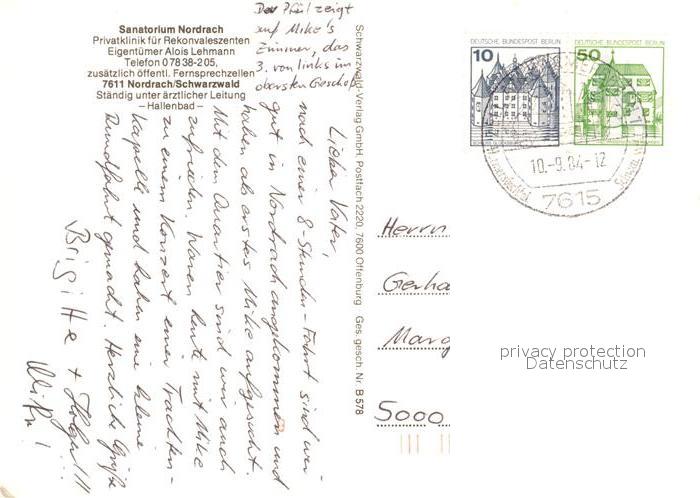 Sanatorium Nordrach
Privatklinik für Rekonvaleszenten
Eigentümer Alois Lehmann
Telefon 0 78 38-2 05,
zusätzlich öffentl. Fernsprechzellen
7611 Nordrach/Schwarzwald
Ständig unter ärztlicher Leitung
– Hallenbad –
Der Pfeil zeigt
auf Mike's
Zimmer, das
3. von links im
obersten Geschoß
Lieber Vater,
nach einer 8-Stunden-Fahrt sind wir
gut in Nordrach angekommen und
haben als erstes Mike aufgesucht.
Mit dem Quartier sind wir auch
zufrieden. Waren heute mit Mike
zu einem Konzert einer Trachten-
kapelle und haben eine kleine
Rundfahrt gemacht. Herzliche Grüße
Brigitte + Holger!!!
Mike!
Schwarzwald-Verlag GmbH, Postfach 2220, 7600 Offenburg Ges. gesch. Nr. B 578
DEUTSCHE BUNDESPOST BERLIN
10
DEUTSCHE BUNDESPOST BERLIN
50
10.-9.84-12
7615
Herrn
Gerha
Marg
5000
privacy protection
Datenschutz